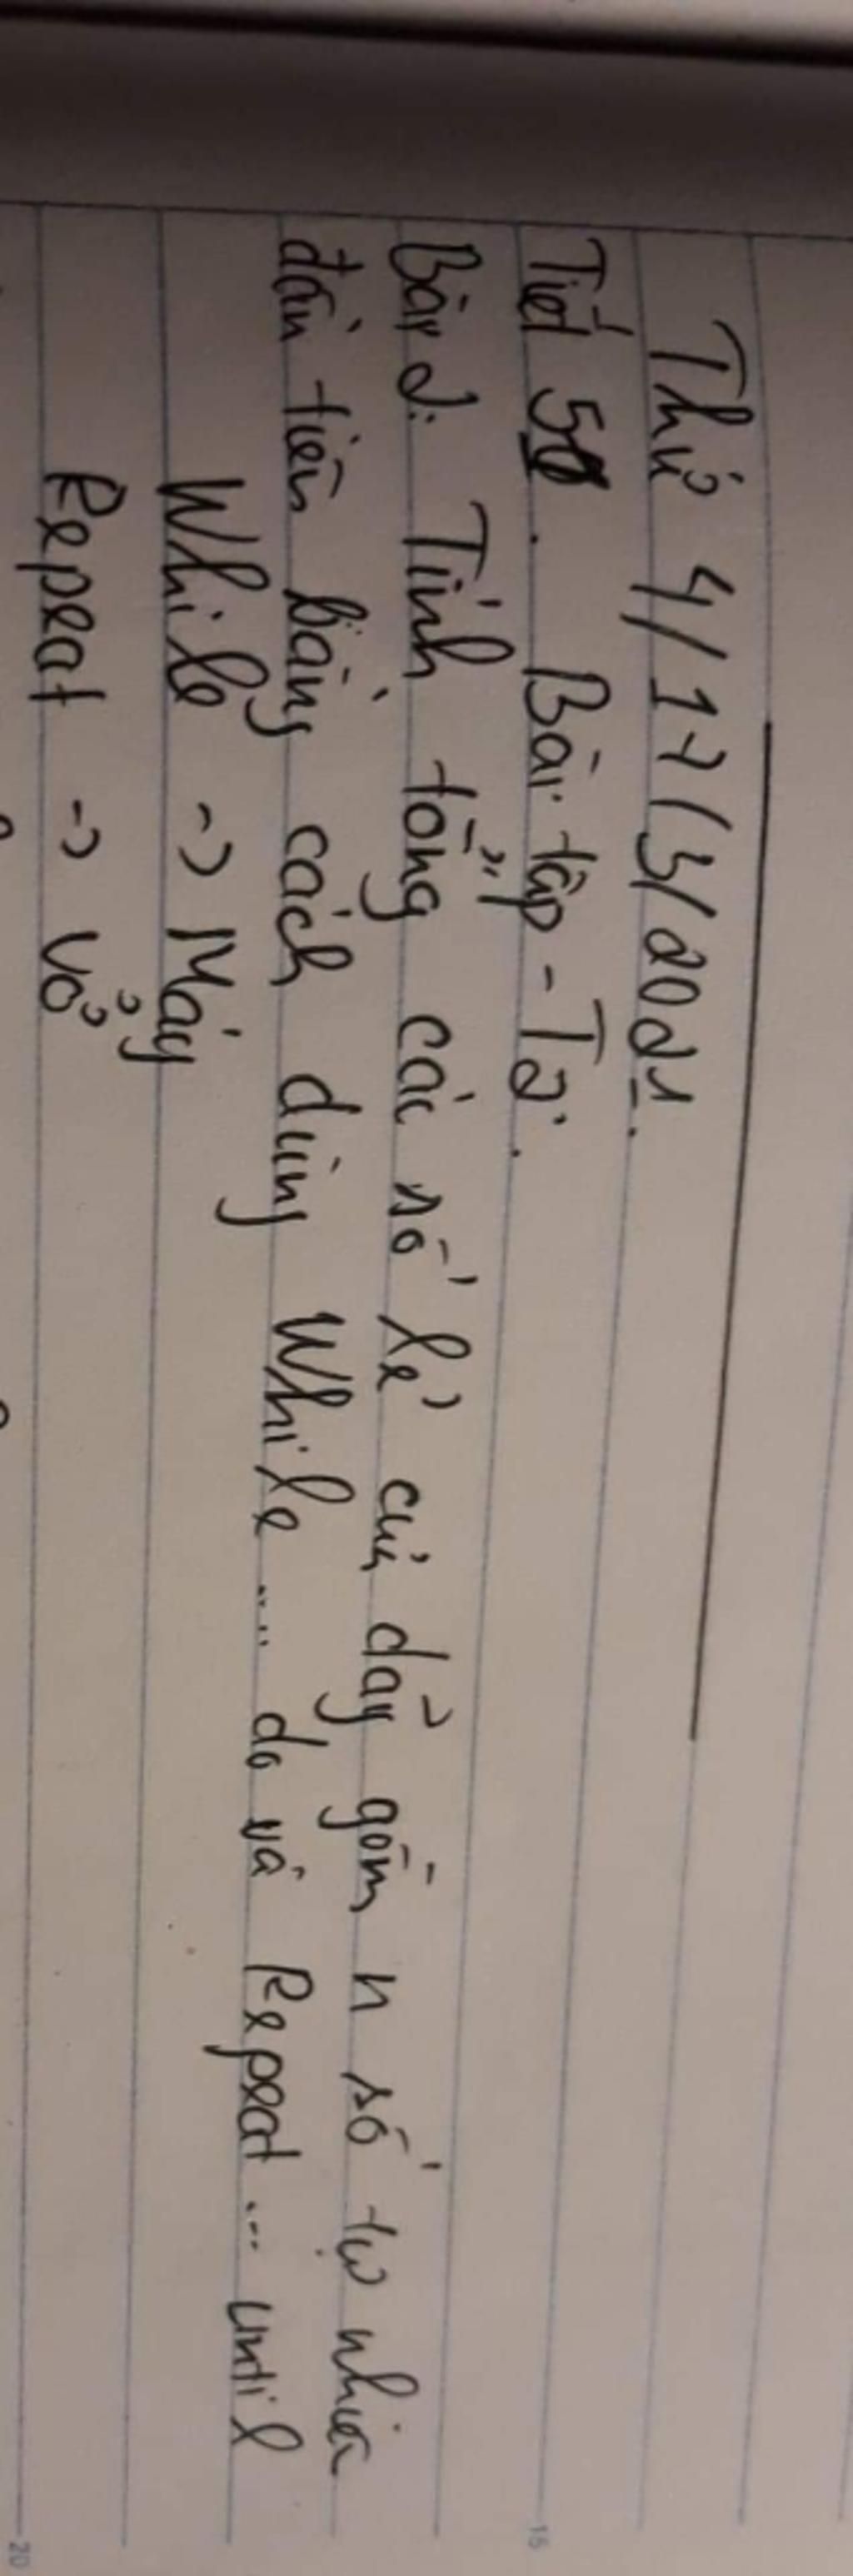 Thứ 4/17/3/2021.
Tiết 5. Bài tập - T2.
Bài 2: Tính tổng các số lẻ của dãy gồm n số tự nhiên
đầu tiên bằng cách dùng While .... do và Repeat ... until
While -> Máy
Repeat -> Vở
16
20